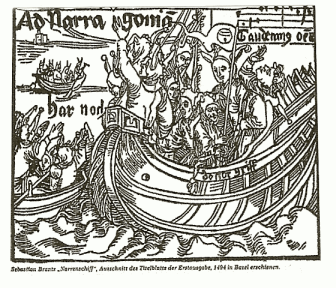 Ad Narragoniā
Gaudeamus oēs
Har noch
doctor grif
Sebastian Brants „Narrenschiff", Ausschnitt des Titelblatts der Erstausgabe, 1494 in Basel erschienen.